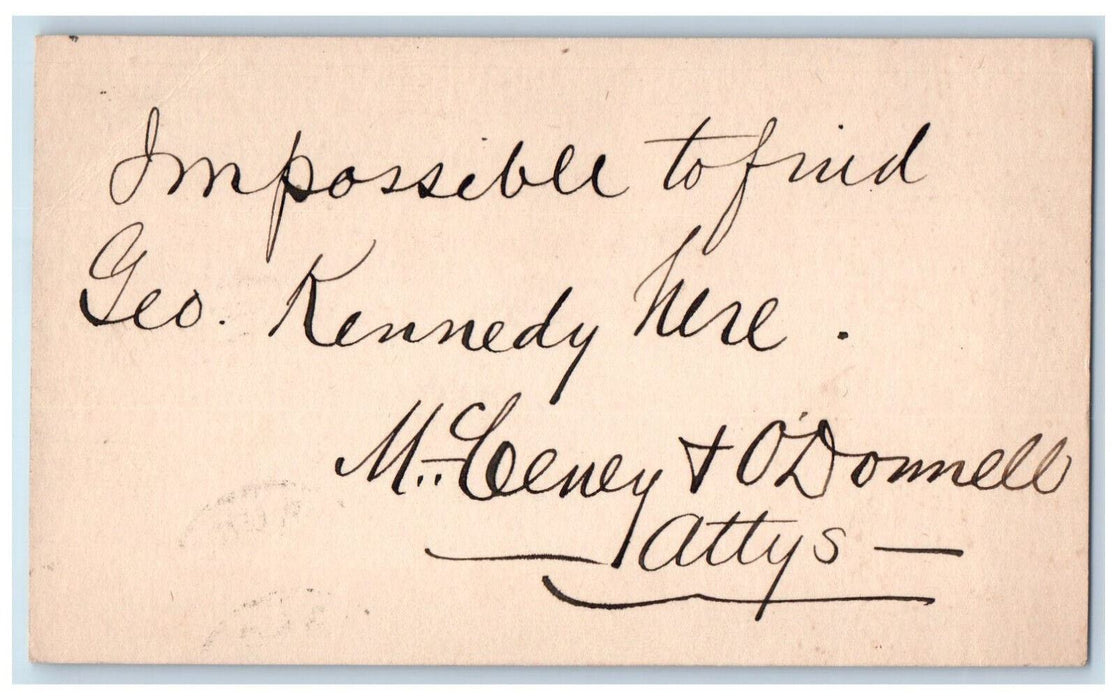 Impossible to find
Geo. Kennedy here.
McCeney & O'Donnell
Attys